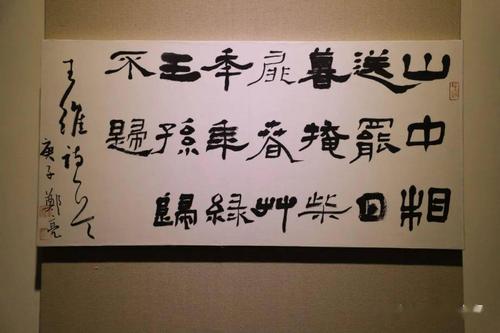 山中相
送罷日
暮掩柴
扉春艸
年年綠
王孫歸
不歸
王維詩一首
庚子鄭亮